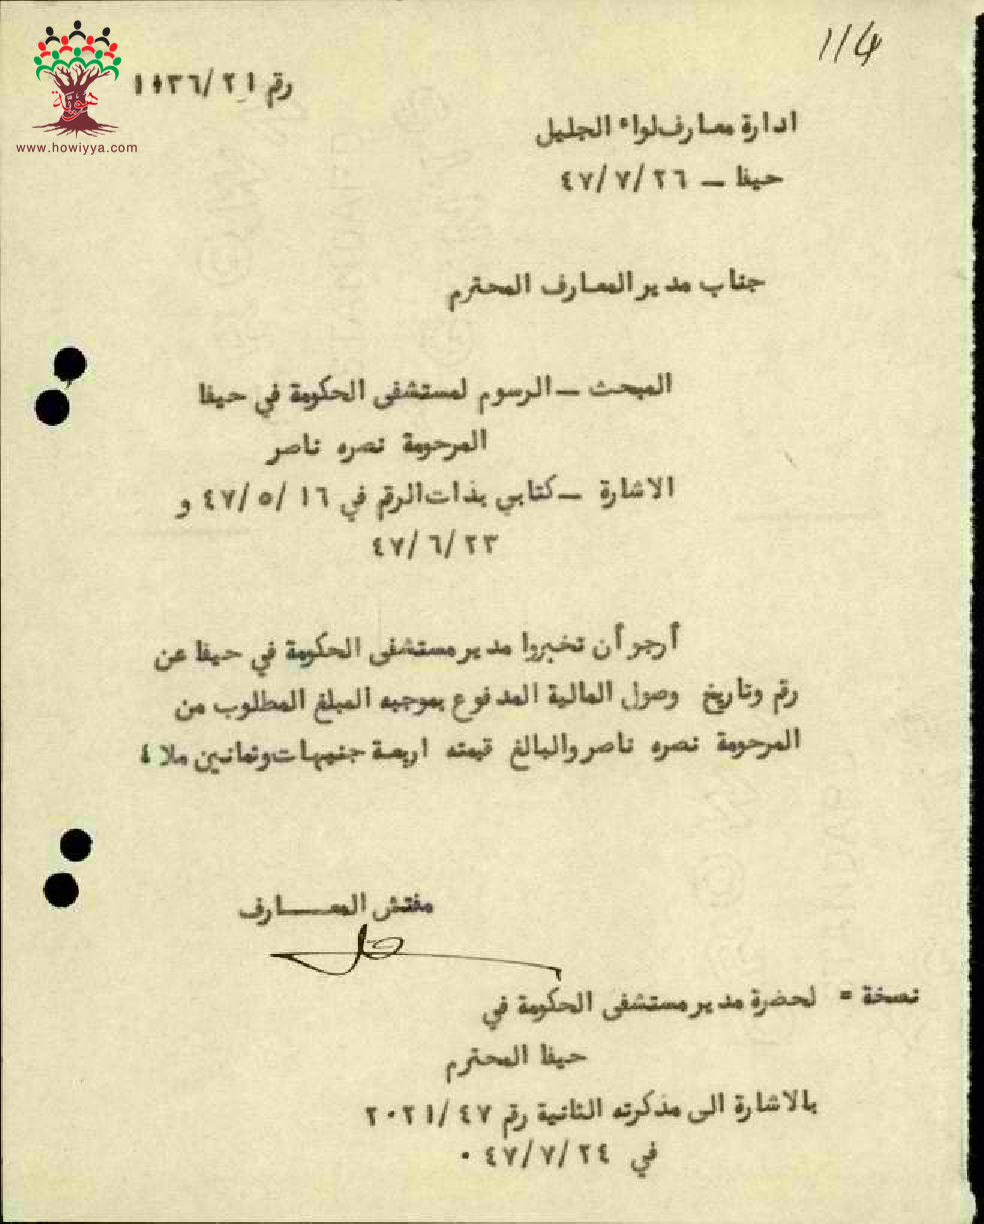 114
هوية
www.howiyya.com
رقم ١٠٣٦/٢١
ادارة معارف لواء الجليل
حيفا – ٤٧/٧/٢٦
جناب مدير المعارف المحترم
المبحث – الرسوم لمستشفى الحكومة في حيفا
المرحومة نصره ناصر
الاشارة – كتابي بذات الرقم في ٤٧/٥/١٦ و
٤٧/٦/٢٣
أرجو أن تخبروا مدير مستشفى الحكومة في حيفا عن
رقم وتاريخ وصول المالية المدفوع بموجبه المبلغ المطلوب من
المرحومة نصره ناصر والبالغ قيمته اربعة جنيهات وثمانين ملا ؛
مفتش المعـــارف
نسخة = لحضرة مدير مستشفى الحكومة في
حيفا المحترم
بالاشارة الى مذكرته الثانية رقم ٢٠٢١/٤٧
في ٤٧/٧/٢٤ ٠